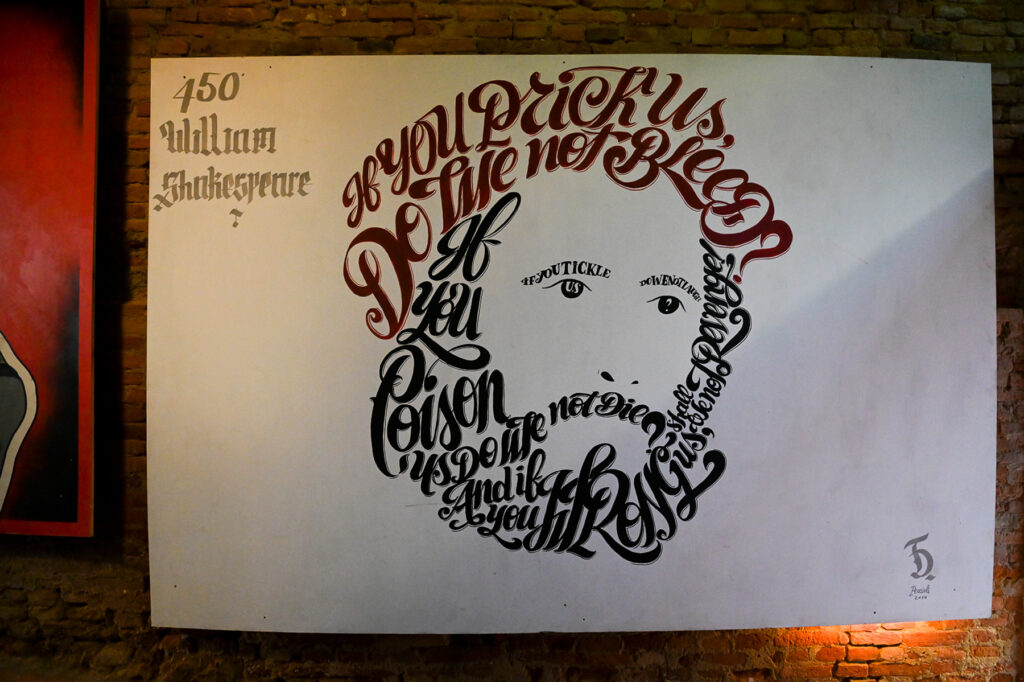 450
William
Shakespeare
If You Prick us,
Do We not Bleed?
If You TICKLE
us
DO WE NOT LAUGH
?
If
You
Poison
us, Do We not Die?
And if
You Wrong us,
shall
we not Revenge?
2014